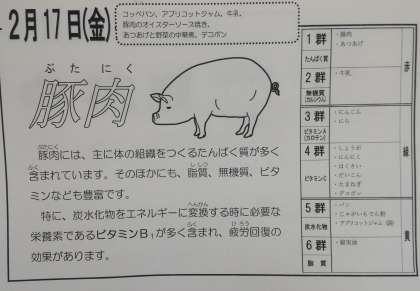 2月17日(金)
コッペパン、アプリコットジャム、牛乳、
豚肉のオイスターソース焼き、
あつあげと野菜の中華煮、デコポン
ぶたにく
豚肉
ぶたにく
豚肉には、主に体の組織をつくるたんぱく質が多く
ふく ししつ
含まれています。そのほかにも、脂質、無機質、ビタ
ミンなども豊富です。
へんかん
特に、炭水化物をエネルギーに変換する時に必要な
ふく ひろう
栄養素であるビタミンB₁が多く含まれ、疲労回復の
効果があります。
1群
たんぱく質
・豚肉
・あつあげ
2群
無機質
(カルシウム)
・牛乳
赤
3群
ビタミンA
(カロテン)
・にんじん
・にら
4群
ビタミンC
・しょうが
・にんにく
・はくさい
・だいこん
・たまねぎ
・デコポン
緑
5群
炭水化物
・パン
・じゃがいもでん粉
・アプリコットジャム
6群
脂質
・綿実油
黄